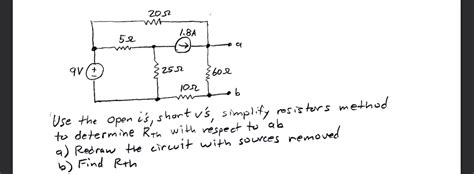 20Ω
5Ω
1.8A
a
9V
25Ω
60Ω
10Ω
b
Use the open i's, short v's, simplify resistors method
to determine Rth with respect to ab
a) Redraw the circuit with sources removed
b) Find Rth